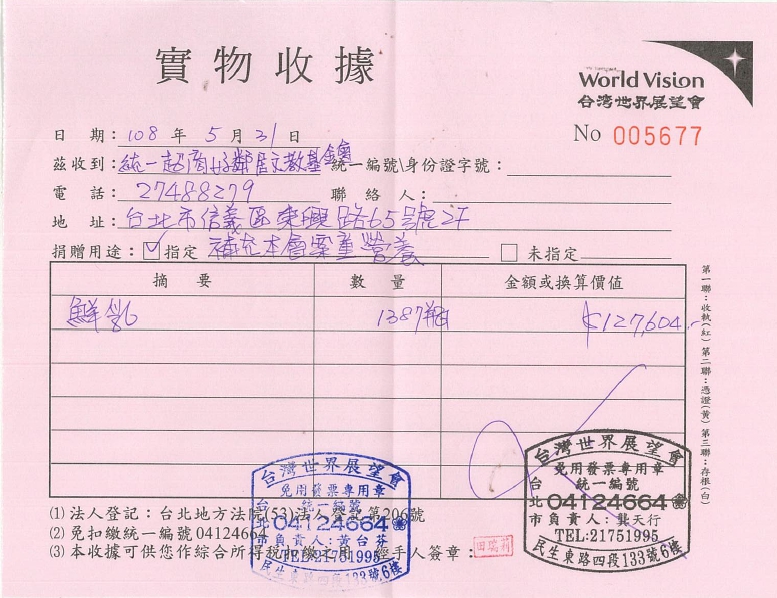 實物收據
World Vision
台灣世界展望會
日 期：108 年 5 月 31 日
No 005677
茲收到：統一超商好鄰居文教基金會 統一編號\身份證字號：
電 話：27488279 聯 絡 人：
地 址：台北市信義區東興路65號2F
捐贈用途：☑指定 補充本會案童營養 □未指定
摘 要 數 量 金額或換算價值
鮮乳 1387瓶 $127,604.-
第一聯：收執(紅) 第二聯：憑證(黃) 第三聯：存根(白)
(1) 法人登記：台北地方法院(53)法人登記第206號
(2) 免扣繳統一編號 04124664
(3) 本收據可供您作綜合所得稅扣繳之用 經手人簽章：
田瑞莉
台灣世界展望會
免用發票專用章
統一編號
04124664
台北市負責人：黃台芬
TEL:21751995
民生東路四段133號6樓
台灣世界展望會
免用發票專用章
統一編號
04124664
台北市負責人：龔天行
TEL:21751995
民生東路四段133號6樓